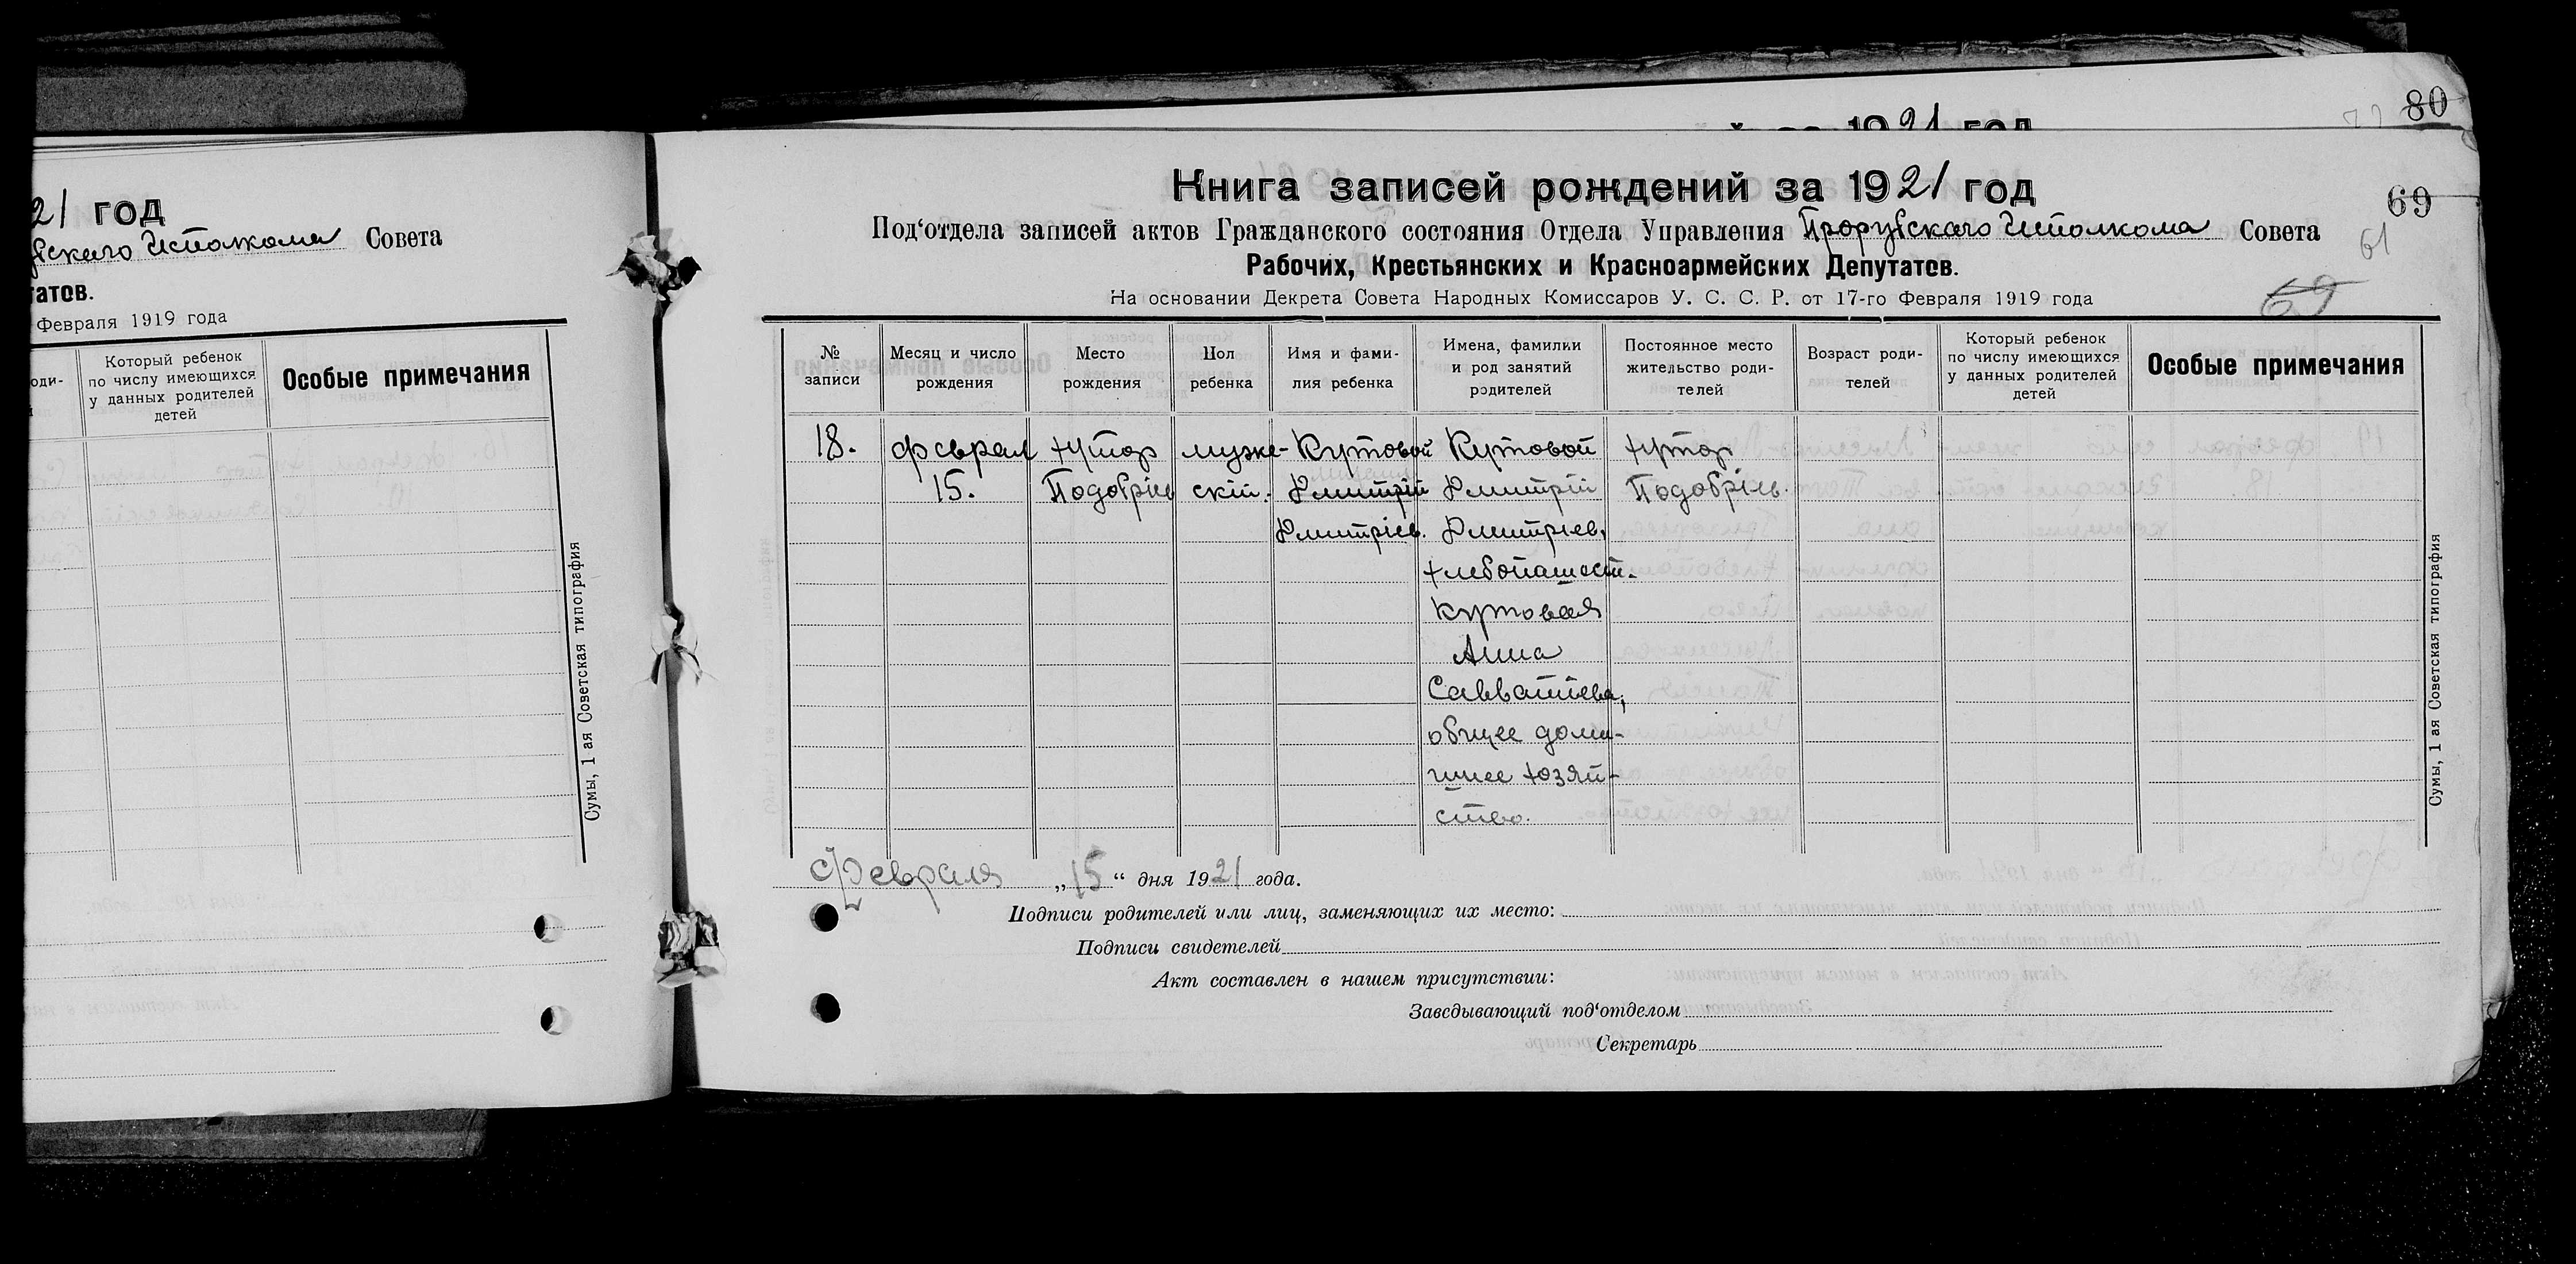 80
1921 год
21 год
Исполкома Совета
Февраля 1919 года
Который ребенок
по числу имеющихся
у данных родителей
детей
Особые примечания
Сумы, 1 ая Советская типография
Книга записей рождений за 1921 год
69
Под‘отдела записей актов Гражданского состояния Отдела Управления Прорубскаго Исполкома Совета
61
Рабочих, Крестьянских и Красноармейских Депутатов.
На основании Декрета Совета Народных Комиссаров У. С. С. Р. от 17-го Февраля 1919 года
69
№ записи
Месяц и число рождения
Место рождения
Пол ребенка
Имя и фами-лия ребенка
Имена, фамилии и род занятий родителей
Постоянное место жительство роди-телей
Возраст роди-телей
Который ребенок по числу имеющихся у данных родителей детей
Особые примечания
18. феврал хутор муже- Кутовой Кутовой хутор
15. Подобріев скій. Дмитрій Дмитрій Подобріев.
Дмитріев. Дмитріев,
хлебопашест.
Кутовая
Анна
Савватіева,
общее дома-
шнее хозяй-
ство.
Сумы, 1 ая Советская типография
Февраля „15“ дня 1921 года.
Подписи родителей или лиц, заменяющих их место:
Подписи свидетелей
Акт составлен в нашем присутствии:
Заведывающий под‘отделом
Секретарь